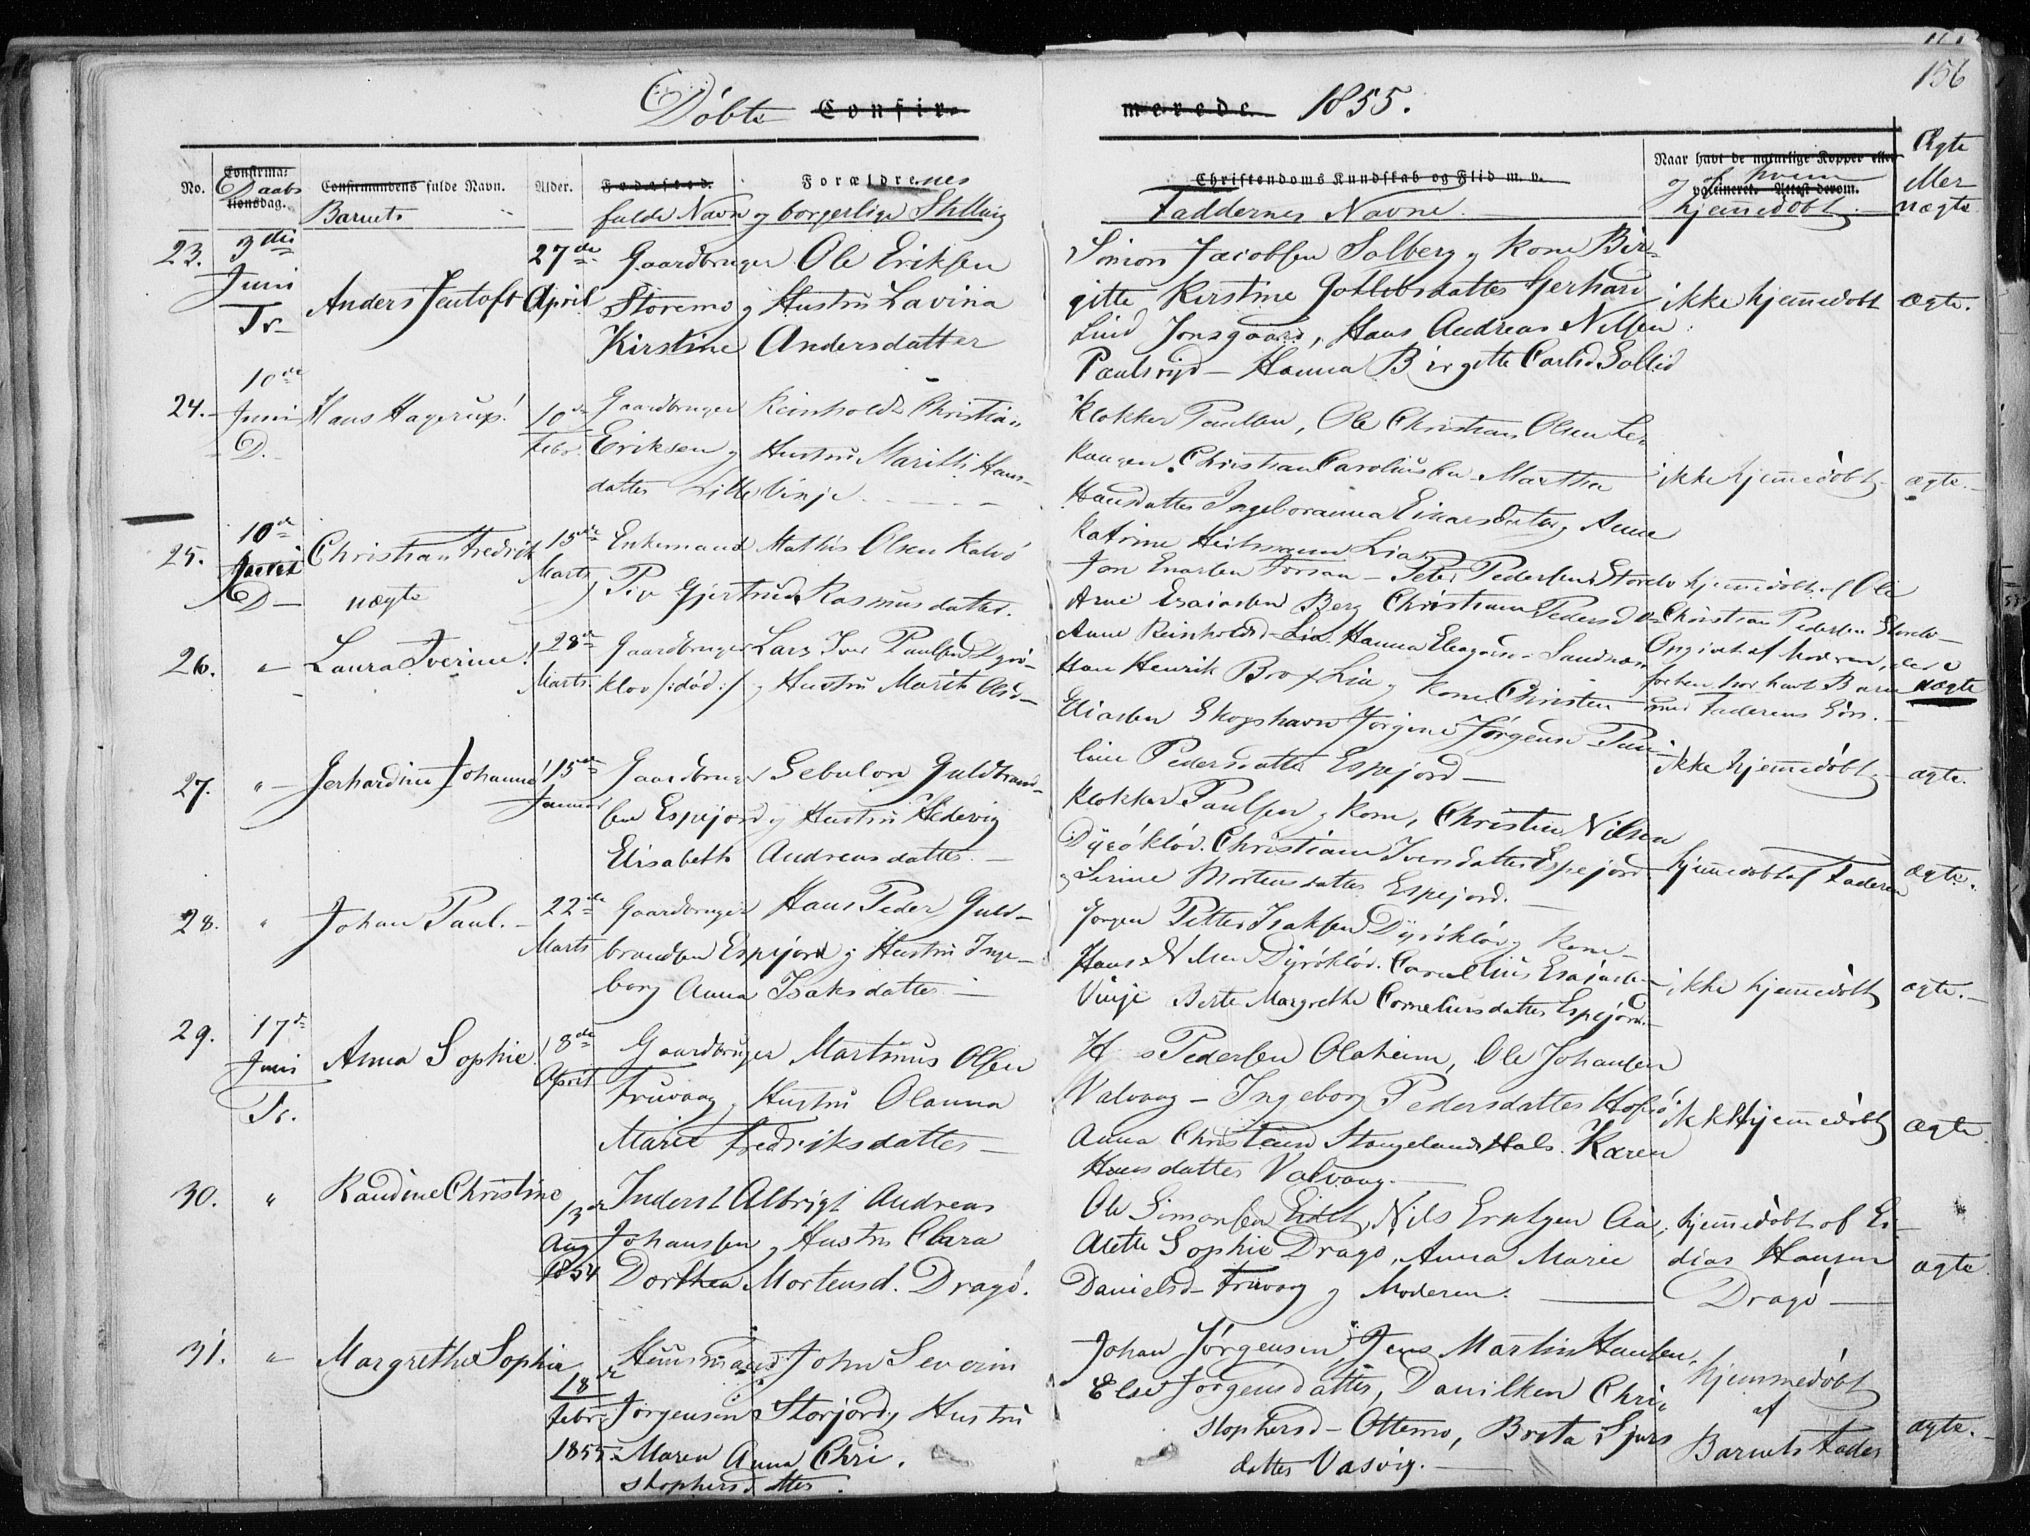 156
Døbte Confir-
merede. 1855.
No.
Confirma-
Daabs
tionsdag.
Confirmandens fulde Navn.
Barnets
Alder.
Fødested.
Forældrenes
fulde Navn og borgerlige Stilling
Christendoms Kundskab og Flid m. v.
Faddernes Navne.
Naar havt de naturlige Kopper eller
og af hvem
vaccineret. Attest derom.
hjemmedøbt
Ægte
eller
uægte
23. 3die Juni Tr-
Anders Jentoft
27de April
Gaardbruger Ole Eriksen
Storemo og Hustru Lavina
Kirstine Andersdatter
Simon Jacobsen Solberg og Kone Bir-
gitte Kirstine Gotlibsdatter Gerhard
Lind Jonsgaard, Hans Andreas Nilsen
Paulsryd - Hanna Birgitte Carlsd Sollid
ikke hjemmedøbt
ægte.
24. 10de Juni D.
Hans Hagerup
10de Febr.
Gaardbruger Reinholdt Christian
Eriksen og Hustru Maritli Hans-
datter Lille Vinje
Klokker Paulsen, Ole Christian Olsen Le-
Kangen Christian Caroliussen Martha
Hansdatter Ingeboranna Einarsdatter og Anne
Katrine Heitmann Lia
ikke hjemmedøbt
ægte.
25. 10de Juni D-
Christian Fredrik
uægte
15de Marts
Enkemand Mathis Olsen Kalvø
Pige Gjertrud Rasmusdatter.
Jon Enarsen Forsaa - Peder Pedersen Storelv
Arne Esaiasen Berg Christiane Pedersd
Anne Reinholdsd- Lia Hanna Sandnæs
hjemmedøbt af Ole
Christian Pedersen Storelv-
Opgivet af Moderen, der
forhen har havt Barn
med Faderens Søn.
uægte
26. "
Laura Iverine.
28de Marts.
Gaardbruger Lars Iver Paulsen Dyrø-
klov /:død:/ og Hustru Marit Olsd-
Hans Henrik Brox Lia og Kone Christen
Eliasen Skogshavn Jørgine Jørgensd Pau-
line Pedersdatter Espejord -
ikke hjemmedøbt
ægte.
27. "
Gerhardine Johanna
15de Januar
Gaardbruger Sebulon Guldbrand-
sen Espejord og Hustru Hedevig
Elisabeth Andreasdatter. -
Klokker Paulsen og Kone, Christen Nilsen
Dyrøkløv. Christiane Iversdatter Espejord
og Serine Mortensdatter Espejord.
hjemmedøbt af Faderen
ægte.
28. "
Johan Paul.
22de Marts
Gaardbruger Hans Peder Guld-
brandsen Espejord og Hustru Inge-
borg Anna Isaksdatter -
Jørgen Petter Isaksen Dyrøkløv og Kone
Hans Nilsen Dyrøkløv. Cornelius Esaiasen
Vinje Berte Margrethe Corneliusdatter Espejord.
ikke hjemmedøbt
ægte.
29. 17de Juni Tr.
Anna Sophie
8de April
Gaardbruger Martinus Olsen
Truvaag og Hustru Olanna
Marit Fredriksdatter -
H s Pedersen Olaheim, Ole Johansen
Valvaag - Ingeborg Pedersdatter Hofsø
Anna Christensd Stangelands Hals. Karen
Hansdatter Valvaag.
ikke hjemmedøbt
ægte.
30. "
Randine Christine
13de Aug 1854
Inderst Albrigt Andreas
Johansen og Hustru Clara
Dorthea Mortensd. Dragø.
Ole Simonsen Eidet, Nils Erntzen Aa,
Alette Sophie Dragø, Anna Marie
Danielsd- Truvag og Moderen.
hjemmedøbt af Es-
dias Hansen
Dragø
ægte.
31. "
Margrethe Sophia
18de Febr 1855
Huusmand John Severin
Jørgensen Storjord og Hustru
Maren Anna Chri.
stophersdatter.
Johan Jørgensen, Jens Martin Hansen,
Else Jørgensdatter, Danilken Chri
stophersd- Ottemo, Berta Sjurs
datter Vasvig.
hjemmedøbt
af
Barnets Fader
ægte.